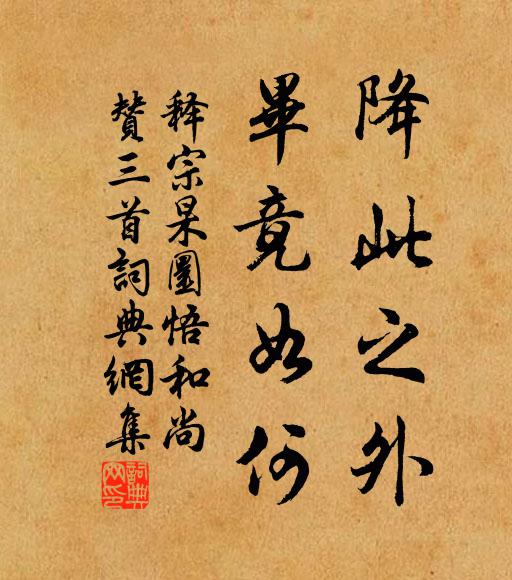 降此之外
畢竟如何
释宗杲圜悟和尚
贊三首詞典網集
詞典網印